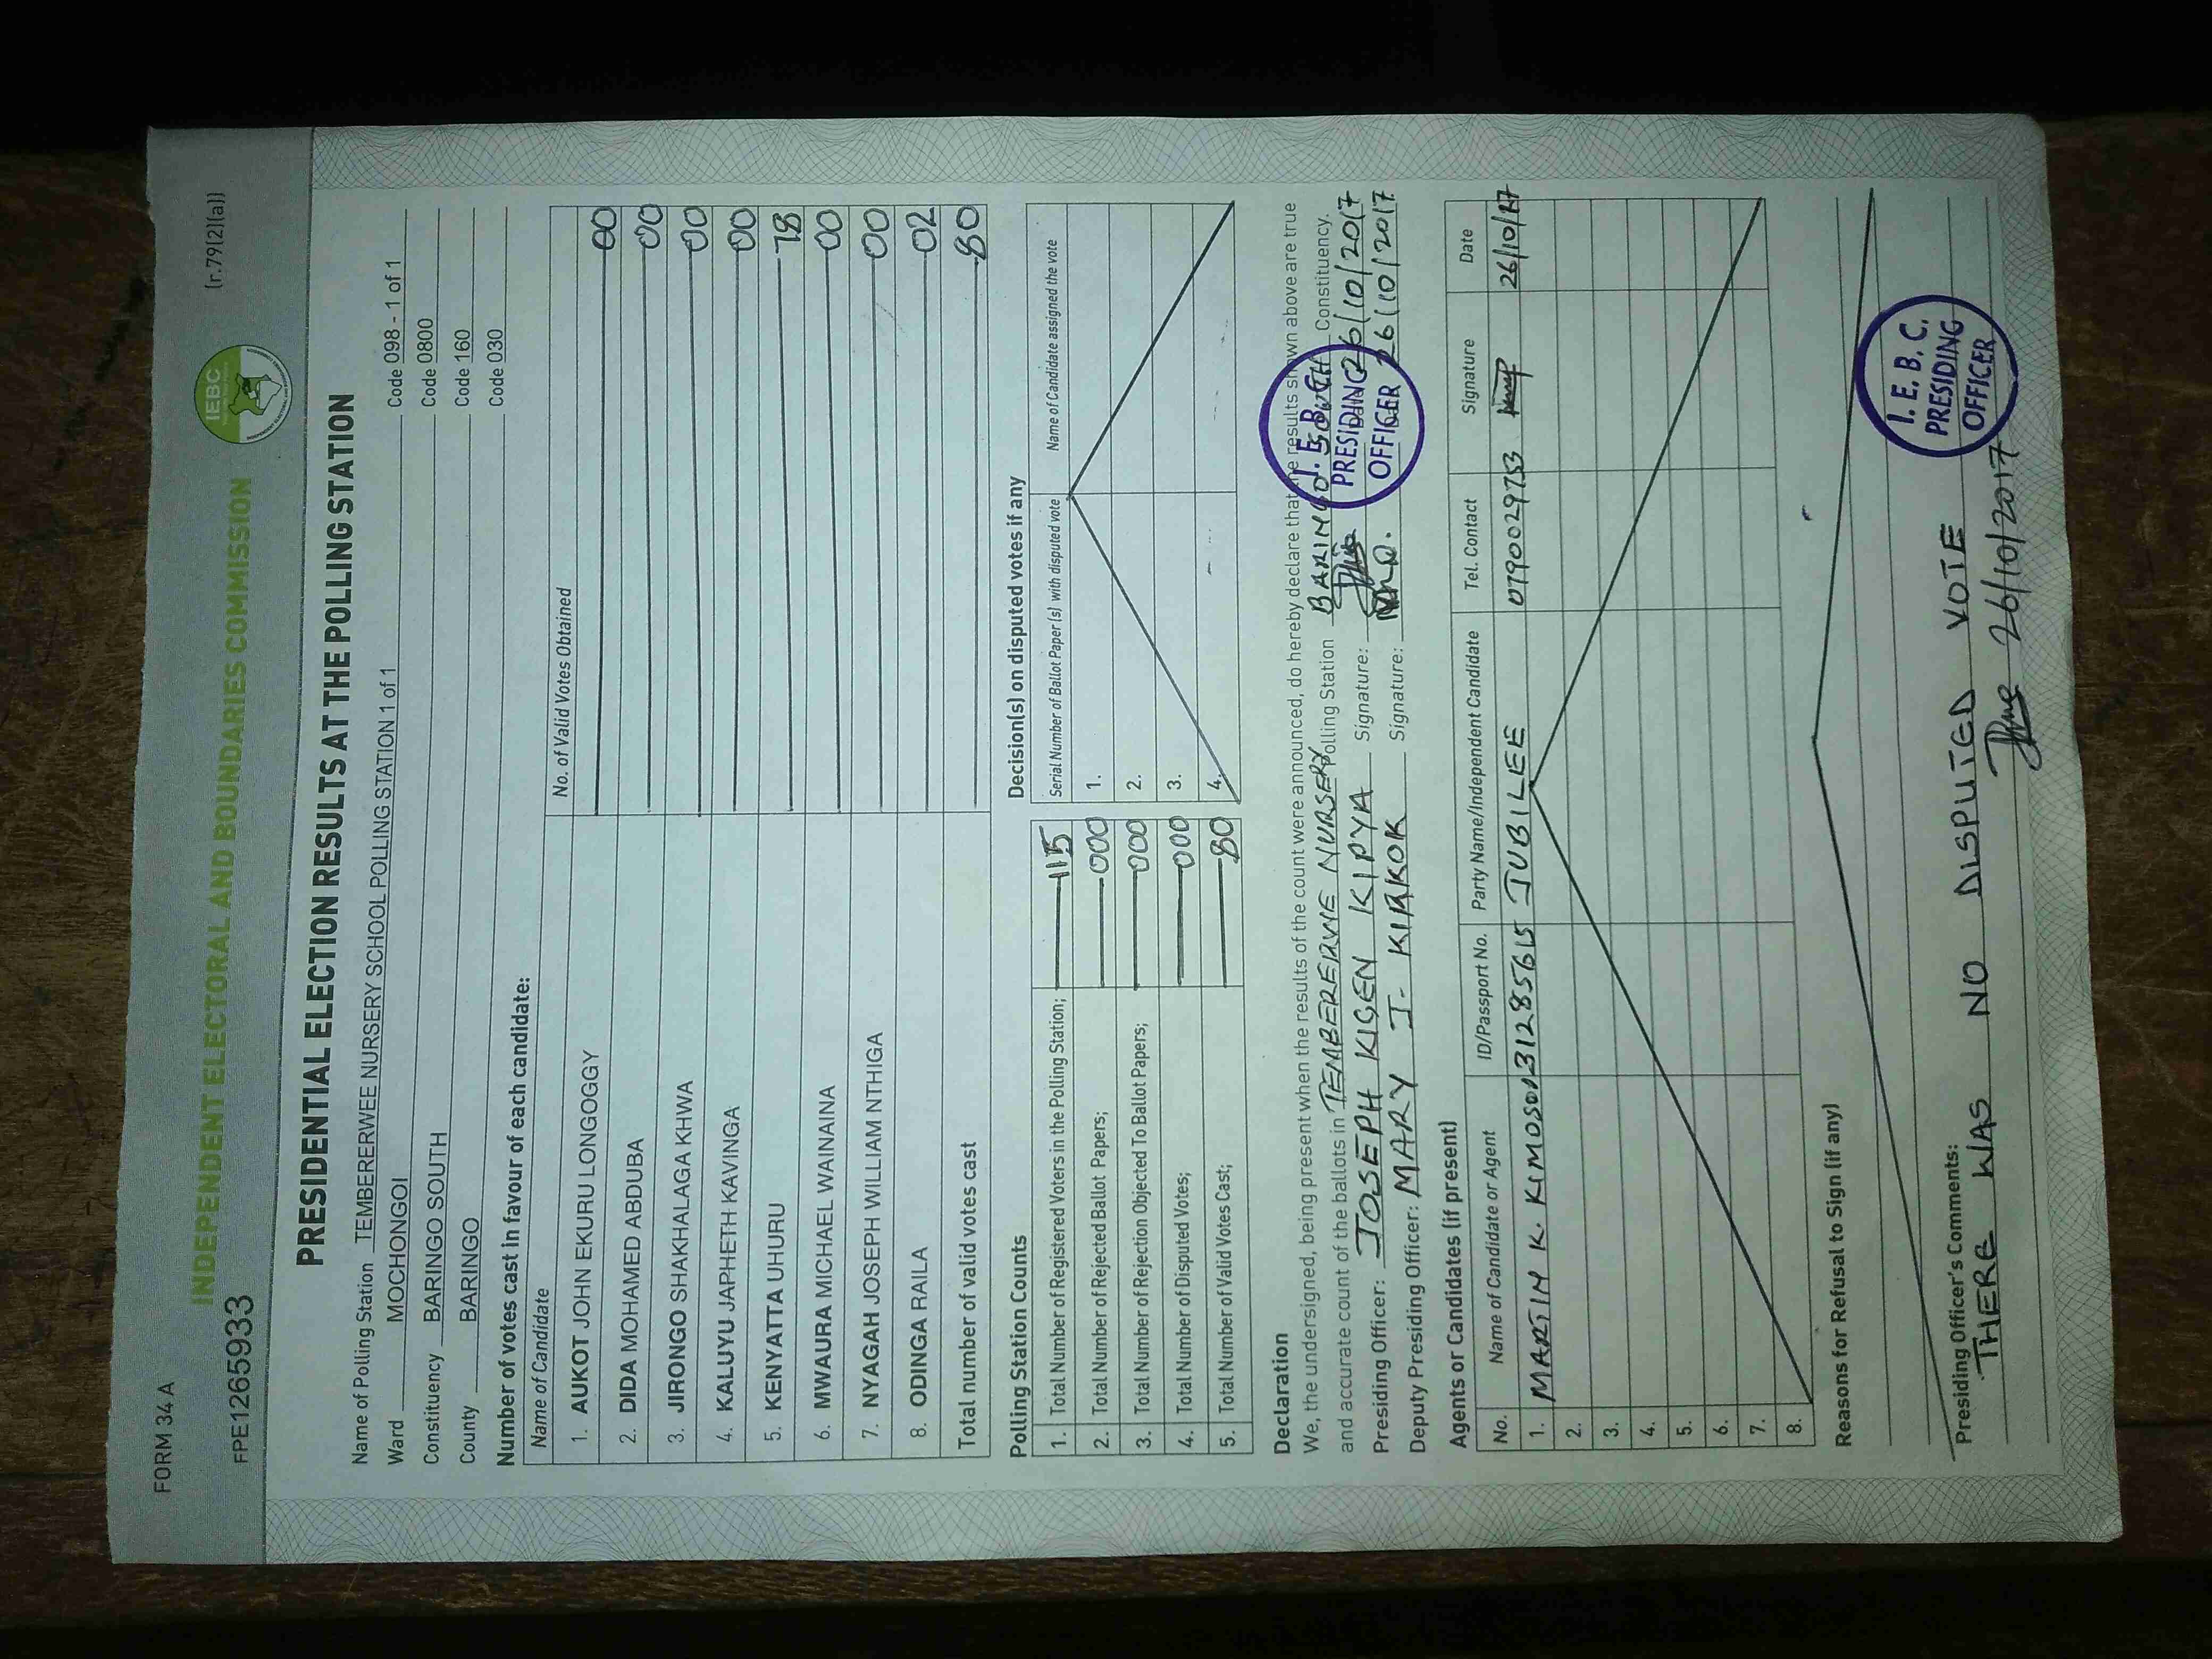 FORM 34 A
(r.79(2)(a))
INDEPENDENT ELECTORAL AND BOUNDARIES COMMISSION
IEBC
FPE1265933
PRESIDENTIAL ELECTION RESULTS AT THE POLLING STATION
Name of Polling Station TEMBERERWEE NURSERY SCHOOL POLLING STATION 1 of 1 Code 098 - 1 of 1
Ward MOCHONGOI Code 0800
Constituency BARINGO SOUTH Code 160
County BARINGO Code 030
Number of votes cast in favour of each candidate:
Name of Candidate No. of Valid Votes Obtained
1. AUKOT JOHN EKURU LONGOGGY 00
2. DIDA MOHAMED ABDUBA 00
3. JIRONGO SHAKHALAGA KHWA 00
4. KALUYU JAPHETH KAVINGA 00
5. KENYATTA UHURU 78
6. MWAURA MICHAEL WAINAINA 00
7. NYAGAH JOSEPH WILLIAM NTHIGA 00
8. ODINGA RAILA 02
Total number of valid votes cast 80
Polling Station Counts
1. Total Number of Registered Voters in the Polling Station; 115
2. Total Number of Rejected Ballot Papers; 000
3. Total Number of Rejection Objected To Ballot Papers; 000
4. Total Number of Disputed Votes; 000
5. Total Number of Valid Votes Cast; 80
Decision(s) on disputed votes if any
Serial Number of Ballot Paper(s) with disputed vote Name of Candidate assigned the vote
1.
2.
3.
4.
Declaration
We, the undersigned, being present when the results of the count were announced, do hereby declare that the results shown above are true
and accurate count of the ballots in TEMBERERWE NURSERY Polling Station BARINGO SOUTH Constituency.
Presiding Officer: JOSEPH KIGEN KIPYA Signature: 26/10/2017
Deputy Presiding Officer: MARY J. KIRKOK Signature: 26/10/2017
I. E. B. C.
PRESIDING
OFFICER
Agents or Candidates (if present)
No. Name of Candidate or Agent ID/Passport No. Party Name/Independent Candidate Tel. Contact Signature Date
1. MARTIN K. JUBILEE 0790029753 26/10/17
2.
3.
4.
5.
6.
7.
8.
Reasons for Refusal to Sign (if any)
Presiding Officer's Comments:
THERE WAS NO DISPUTED VOTE
26/10/2017
I. E. B. C.
PRESIDING
OFFICER